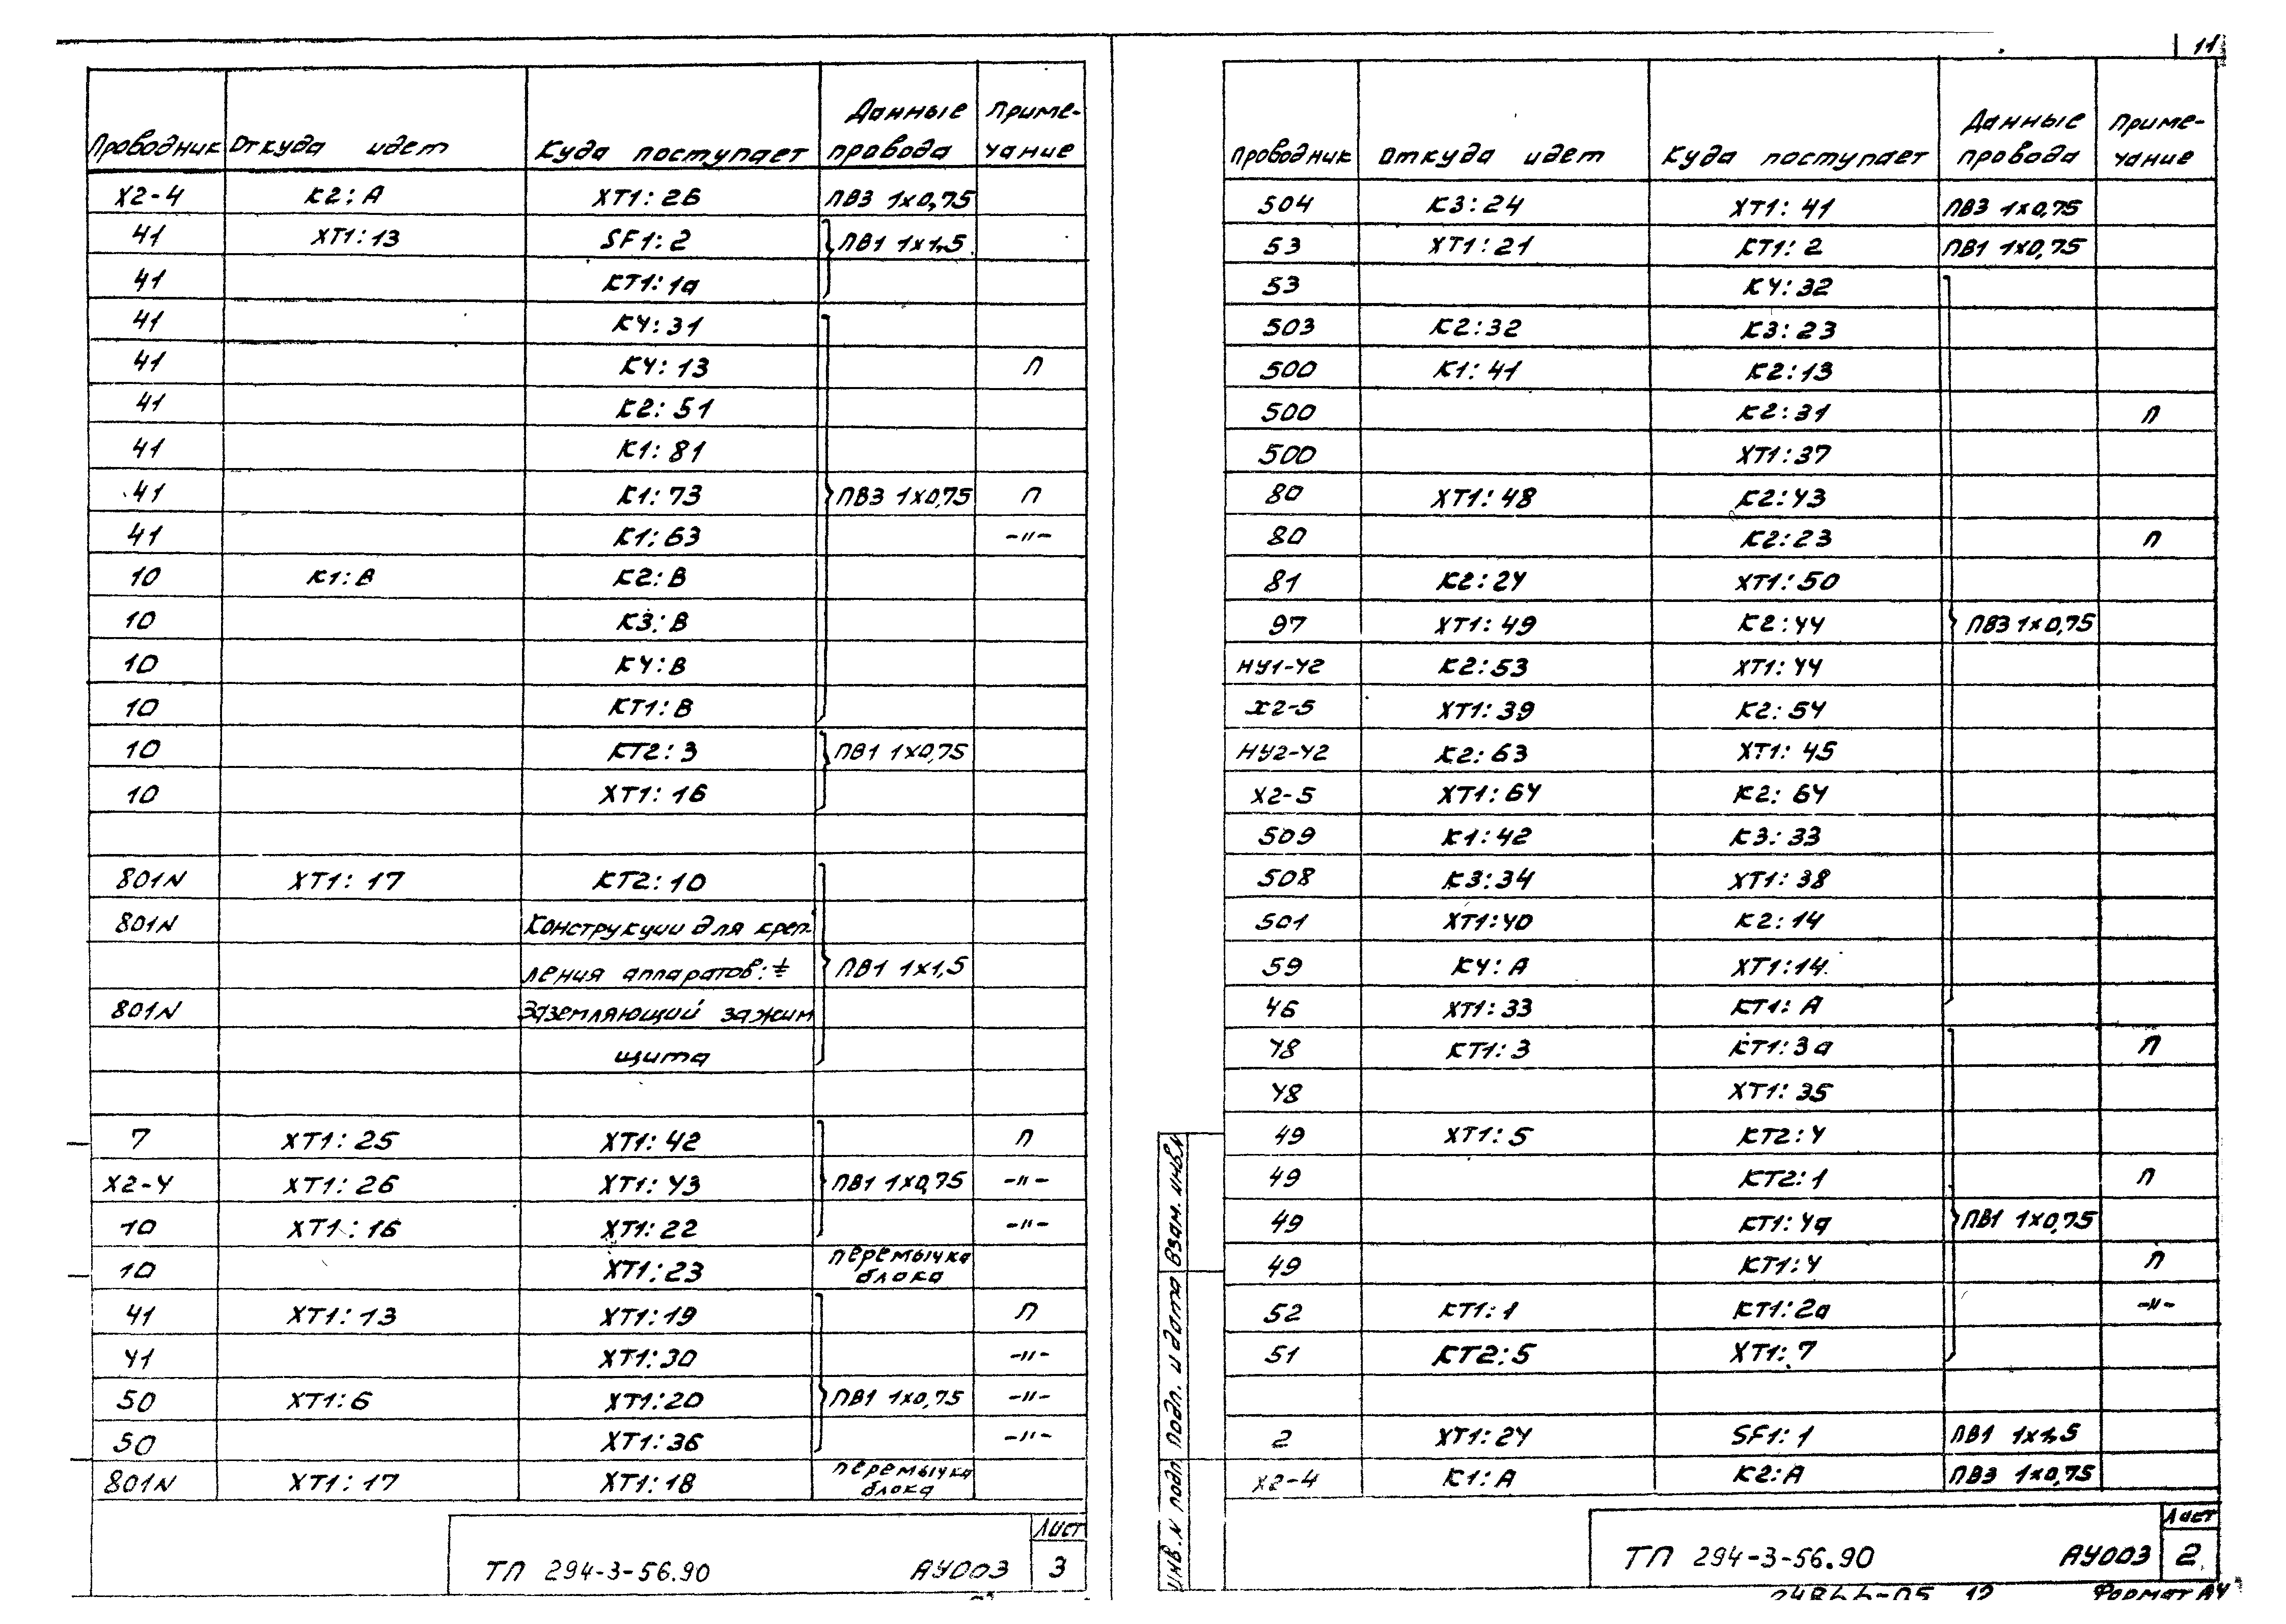 11
Проводник Откуда идет Куда поступает Данные провода Приме-чание
Х2-4 К2:А ХТ1:26 ПВ3 1х0,75
41 ХТ1:13 SF1:2 ПВ1 1х1,5
41 КТ1:1а
41 К4:31
41 К4:13 П
41 К2:51
41 К1:81
41 К1:73 ПВ3 1х0,75 П
41 К1:63 -"-
10 К1:В К2:В
10 К3:В
10 К4:В
10 КТ1:В
10 КТ2:3 ПВ1 1х0,75
10 ХТ1:16
801N ХТ1:17 КТ2:10
801N Конструкции для креп-
ления аппаратов:⏚ ПВ1 1х1,5
801N Заземляющий зажим
щита
7 ХТ1:25 ХТ1:42 П
Х2-4 ХТ1:26 ХТ1:43 ПВ1 1х0,75 -"-
10 ХТ1:16 ХТ1:22 -"-
10 ХТ1:23 перемычка блока
41 ХТ1:13 ХТ1:19 П
41 ХТ1:30 -"-
50 ХТ1:6 ХТ1:20 ПВ1 1х0,75 -"-
50 ХТ1:36 -"-
801N ХТ1:17 ХТ1:18 перемычка блока
ТП 294-3-56.90 АУ003 Лист 3
Проводник Откуда идет Куда поступает Данные провода Приме-чание
504 К3:24 ХТ1:41 ПВ3 1х0,75
53 ХТ1:21 КТ1:2 ПВ1 1х0,75
53 К4:32
503 К2:32 К3:23
500 К1:41 К2:13
500 К2:31 П
500 ХТ1:37
80 ХТ1:48 К2:43
80 К2:23 П
81 К2:24 ХТ1:50
97 ХТ1:49 К2:44 ПВ3 1х0,75
НУ1-У2 К2:53 ХТ1:44
Х2-5 ХТ1:39 К2:54
НУ2-У2 К2:63 ХТ1:45
Х2-5 ХТ1:64 К2:64
509 К1:42 К3:33
508 К3:34 ХТ1:38
501 ХТ1:40 К2:14
59 К4:А ХТ1:14
46 ХТ1:33 КТ1:А
48 КТ1:3 КТ1:3а П
48 ХТ1:35
49 ХТ1:5 КТ2:4
49 КТ2:1 П
49 КТ1:4а ПВ1 1х0,75
49 КТ1:4 П
52 КТ1:1 КТ1:2а -"-
51 КТ2:5 ХТ1:7
2 ХТ1:24 SF1:1 ПВ1 1х1,5
Х2-4 К1:А К2:А ПВ3 1х0,75
Инв.N подл. Подп. и дата Взам. инв.N
ТП 294-3-56.90 АУ003 Лист 2
24866-05 12 Формат А4